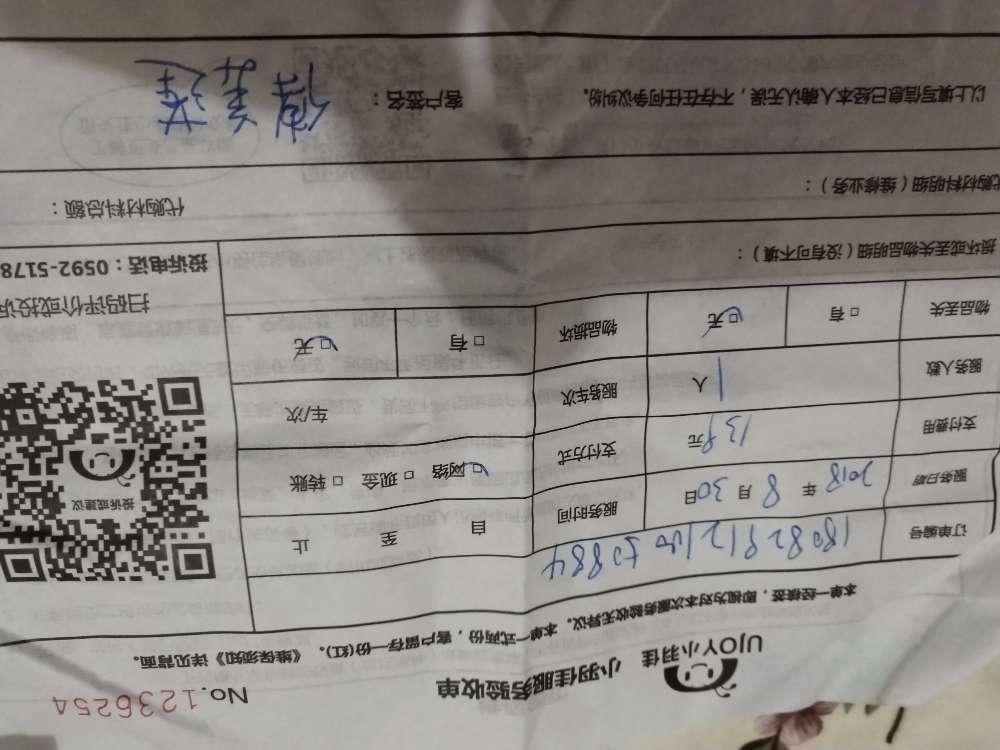 No.1236254
UJOY小羽佳
小羽佳服务验收单
本单一经核签，即视为对本次服务验收无异议。本单一式两份，客户留存一份(红)。《维保须知》详见背面。
订单编号
服务日期 2018 年 8 月 30 日 服务时间 自 至 止
支付费用 139 元 支付方式 网络 □ 现金 □ 转账
服务人数 1 人 服务车次 车/次
物品丢失 □ 有 □ 无 物品损坏 □ 有 □ 无
投诉或建议
扫码评价或投诉
投诉电话：0592-5178
损坏或丢失物品明细（没有可不填）：
代购材料明细（维修业务）： 代购材料总额：
以上填写信息已经本人确认无误，不存在任何争议纠纷。 客户签名：